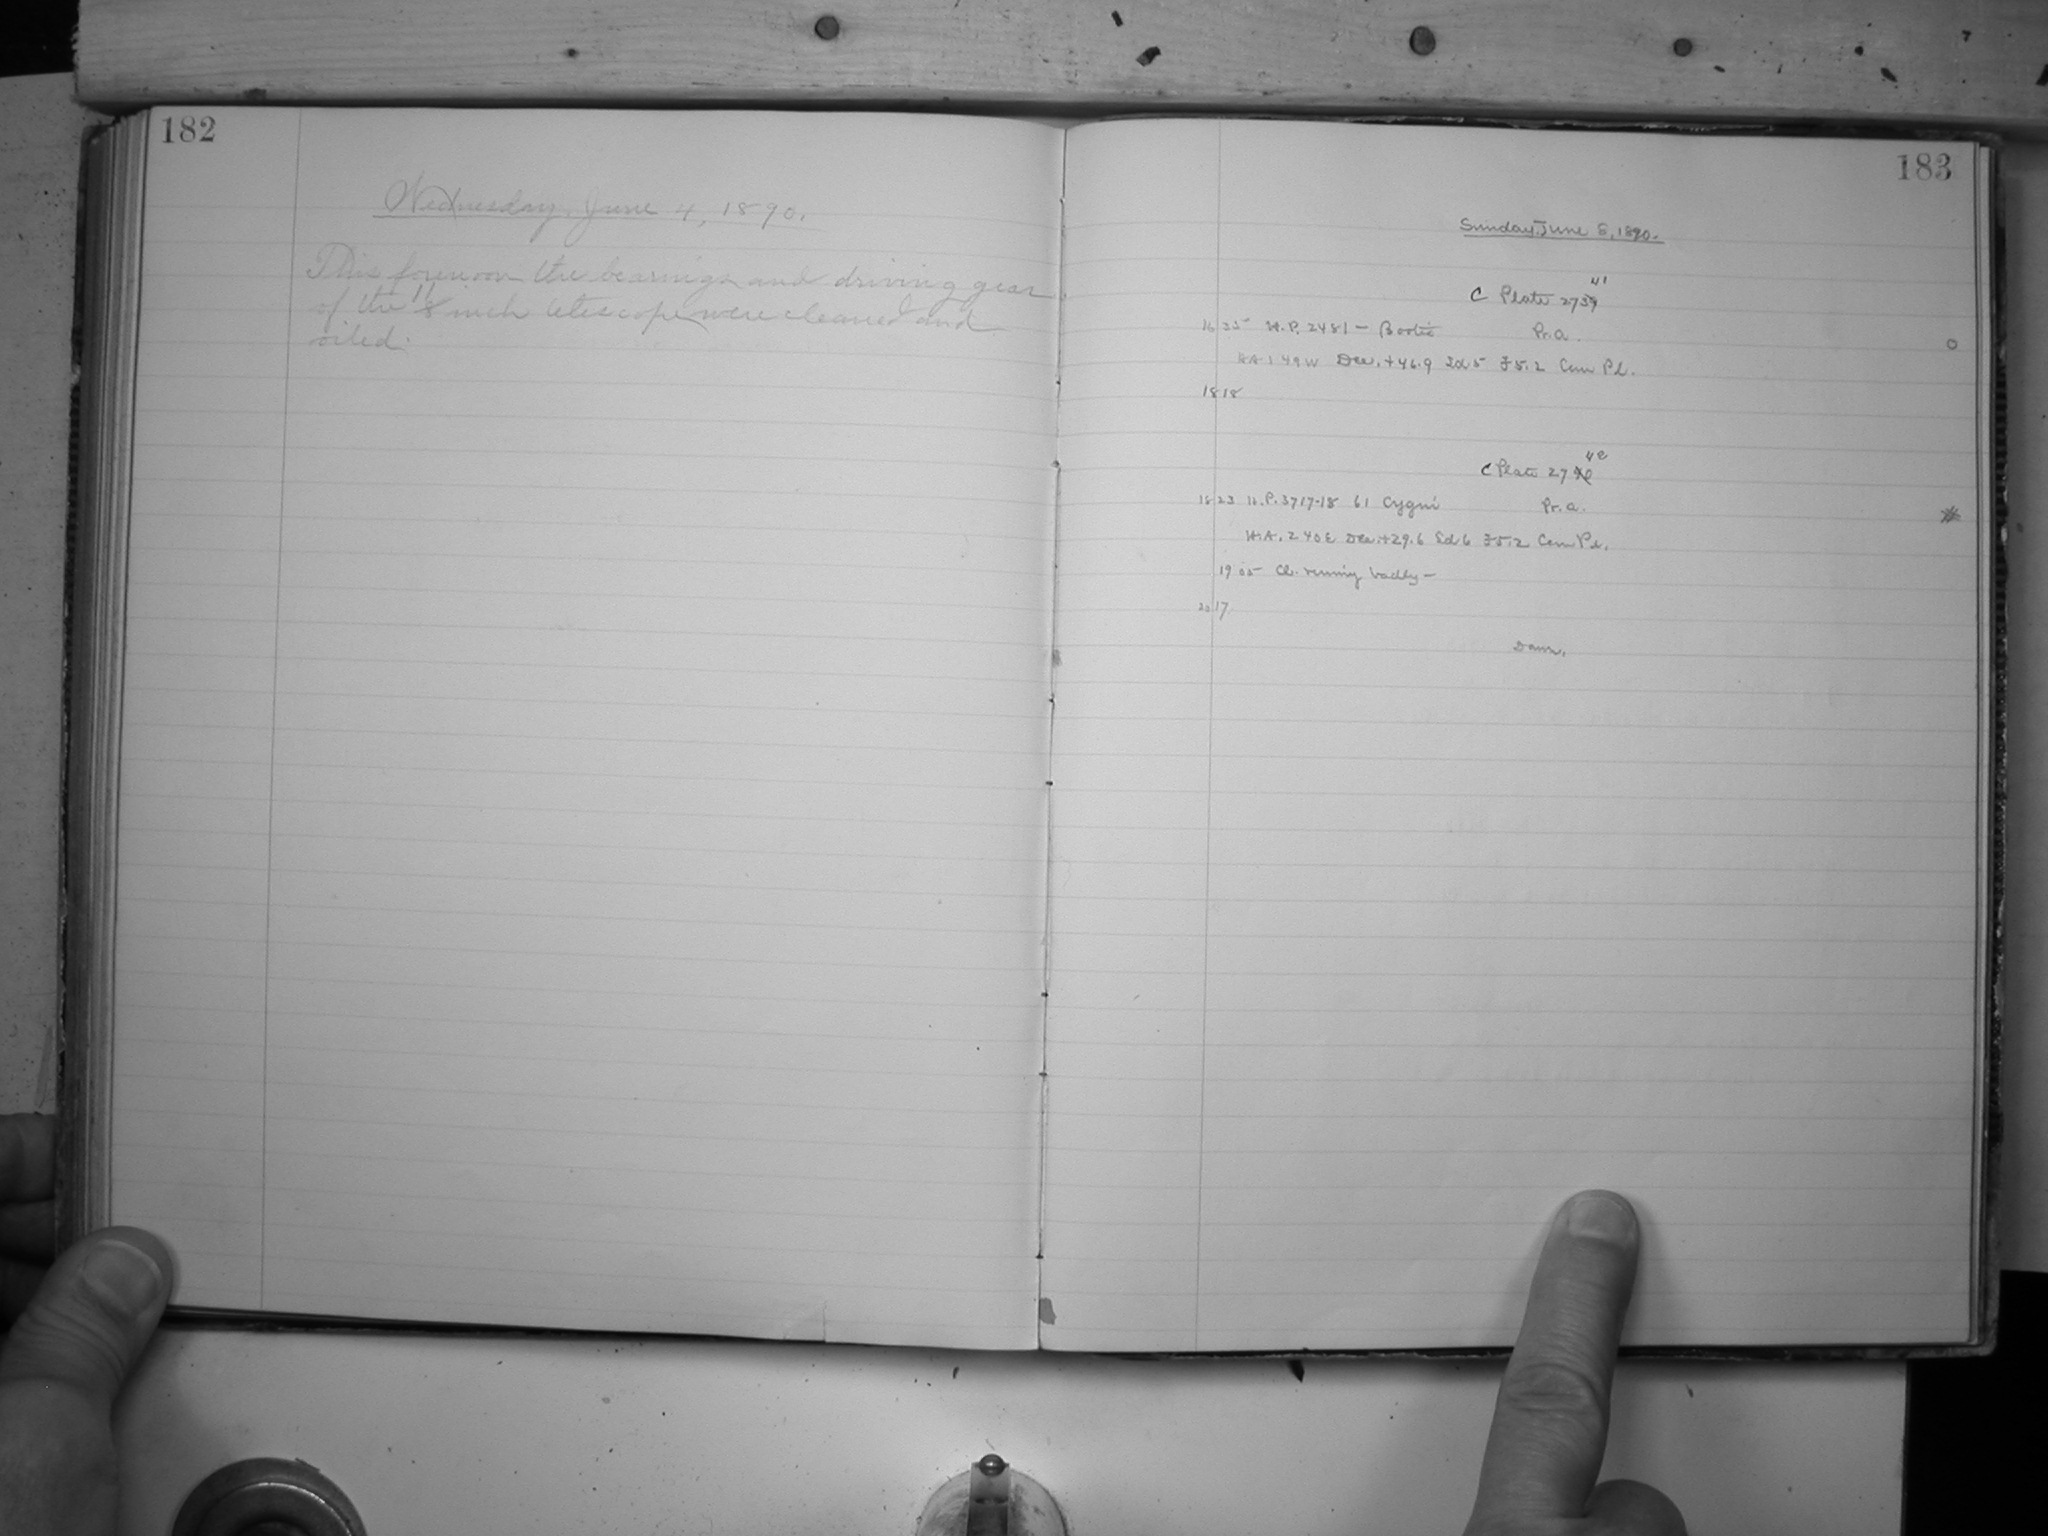 182
Wednesday, June 4, 1890.
This forenoon the bearings and driving gear
of the 11
8 inch telescope were cleaned and
oiled.
183
Sunday, June 8, 1890.
41
C Plate 2739
16 35 H.P. 2481 — Bootis Pr. a.
H.A. 1 49 W Dec. +46.9 Sd 5 F 5.2 Cem Pl.
18 18
42
C Plate 2740
18 23 H.P. 3717-18 61 Cygni Pr. a.
H.A. 2 40 E Dec. +29.6 Sd 6 F 5.2 Cem Pl.
19 05 Cl. running badly —
22 17
Dawn.